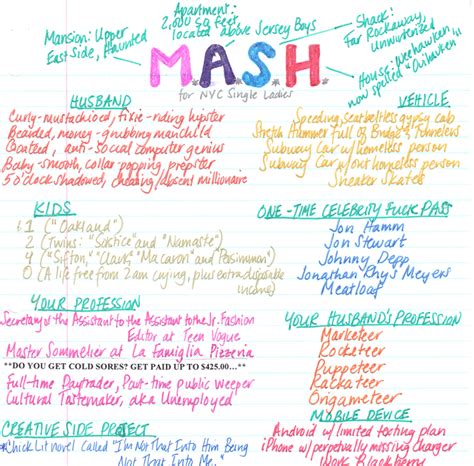 Apartment:
2,000 sq feet
located above Jersey Boys
Mansion: Upper
East Side, Haunted
Shack:
Far Rockaway,
Unwinterized
M.A.S.H.
for NYC Single Ladies
House: Weehawken,
now spelled "Ouihawken"
HUSBAND
Curly-mustachioed, fixie-riding hipster
Bearded, money-grubbing manchild
Goateed, anti-social computer genius
Baby-smooth, collar popping, prepster
5 o'clock shadowed, cheating/absent millionaire
VEHICLE
Speeding, seatbeltless gypsy cab
Stretch Hummer full of Bridge & Tunnelers
Subway Car w/homeless person
Subway Car w/out homeless person
Sneaker Skates
KIDS
1 ("Oakland")
2 (Twins: "Solstice" and "Namaste")
4 ("Sifton," "Clark," "Macaron" and "Persimmon")
0 (A life free from 2 am crying, plus extra disposable
income)
ONE-TIME CELEBRITY FUCK PASS
Jon Hamm
Jon Stewart
Johnny Depp
Jonathan Rhys Meyers
Meatloaf
YOUR PROFESSION
Secretary of the Assistant to the Assistant to the Jr. Fashion
Editor at Teen Vogue
Master Sommelier at La Famiglia Pizzeria
**DO YOU GET COLD SORES? GET PAID UP TO $425.00...**
Full-time Daytrader, Part-time public weeper
Cultural Tastemaker, aka Unemployed
YOUR HUSBAND'S PROFESSION
Marketeer
Rocketeer
Puppeteer
Racketeer
Origameteer
CREATIVE SIDE PROJECT
*Chick Lit novel Called "I'm Not That Into Him Being
Not That Into Me."
MOBILE DEVICE
Android w/limited texting plan
iPhone w/perpetually missing charger
Work Blackberry